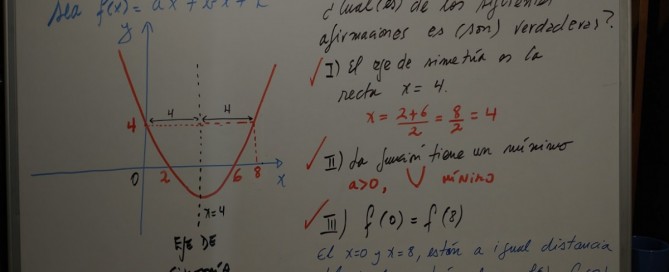 Sea f(x) = ax² + bx + c
¿Cual(es) de las siguientes
afirmaciones es (son) verdaderas?
y
4
4
4
0
2
6
8
x
x=4
EJE DE
SIMETRÍA
✓ I) El eje de simetría es la
recta x = 4.
x = 2+6/2 = 8/2 = 4
✓ II) La función tiene un mínimo
a>0, ∪ mínimo
✓ III) f(0) = f(8)
El x=0 y x=8, están a igual distancia